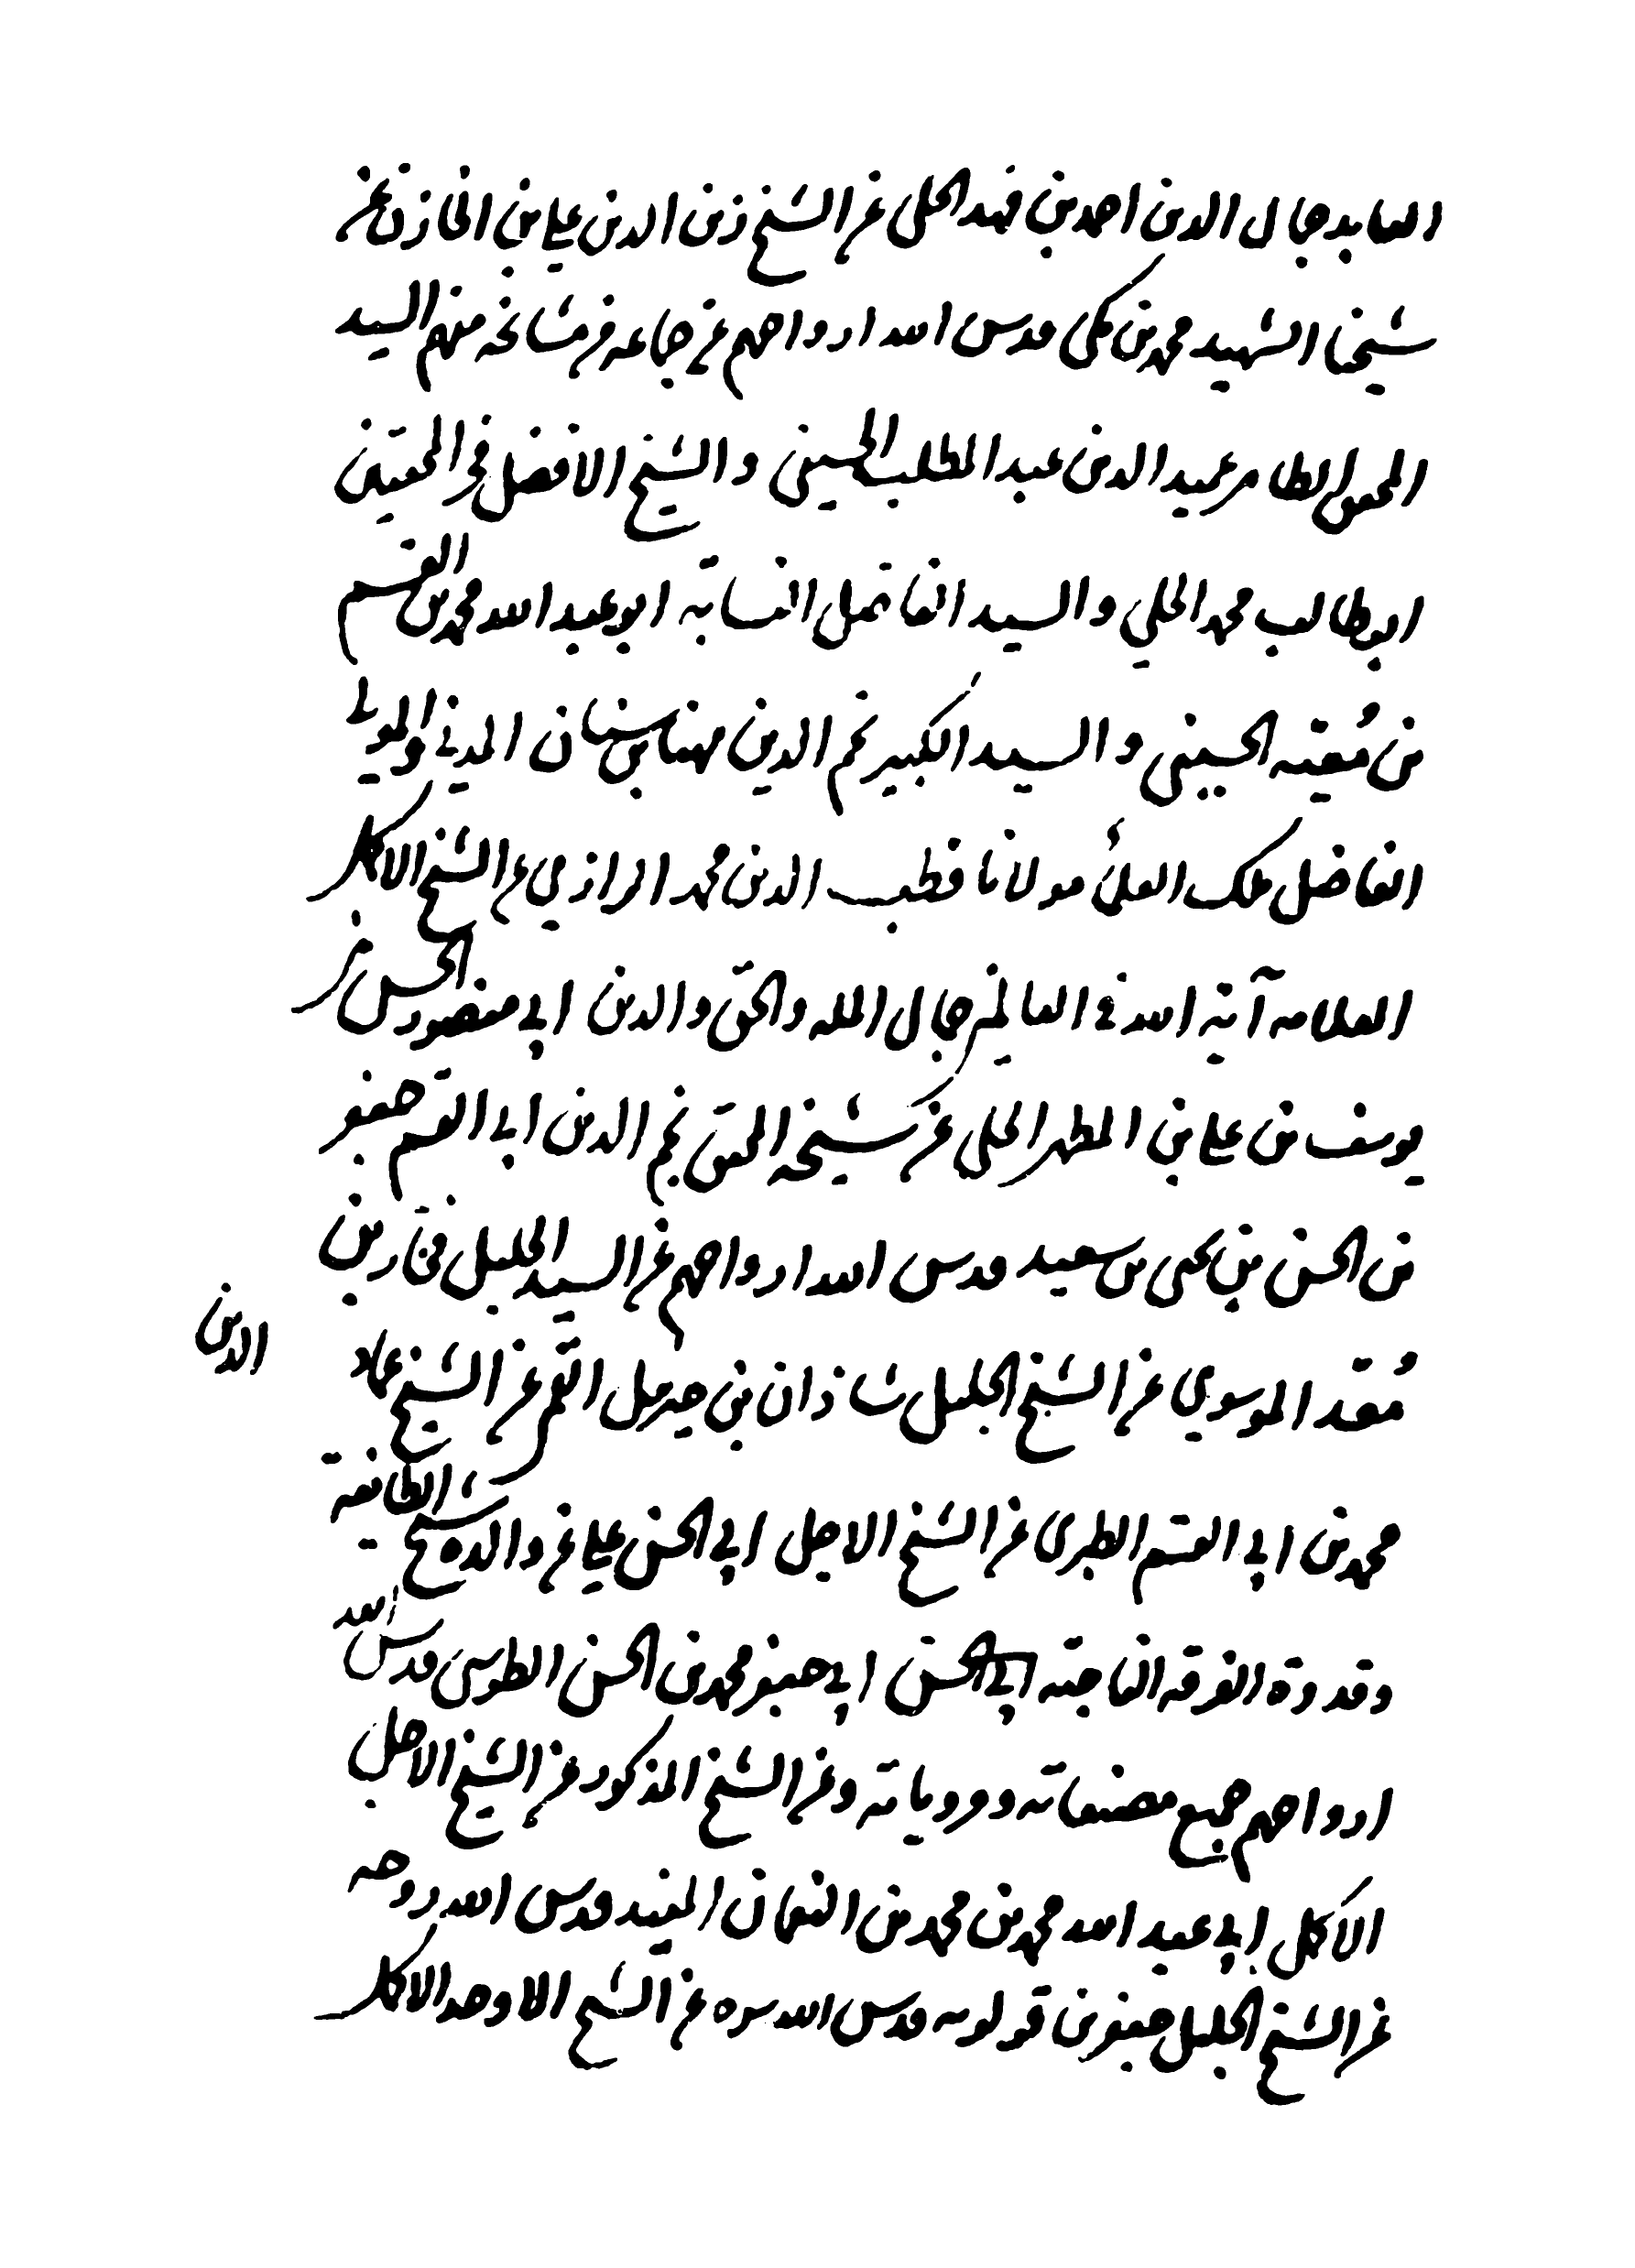 العابد جمال الدين احمد بن فهد الحلي عن الشيخ زين الدين علي بن الخازن عن
شيخنا الشهيد محمد بن مكي قدس الله ارواحهم عن جماعه من مشائخه منهم السيد
الطاهر عميد الدين عبد المطلب الحسيني والشيخ الافضل فخر المحققين
ابو طالب محمد الحلي والسيد الفاضل النسابة ابو عبد الله محمد بن القسم
بن مُعَيّه الحسيني والسيد الكبير نجم الدين مهنا بن سنان المدني والمولى
الفاضل ملك العلماء مولانا قطب الدين محمد الرازي عن الشيخ الاكمل
العلامه آية الله في العالمين جمال المله والحق والدين ابي منصور الحسن بن
يوسف بن علي بن المطهر الحلي عن شيخه المحقق نجم الدين ابي القسم جعفر
بن الحسن بن يحيى بن سعيد قدس الله ارواحهم عن السيد الجليل فخار بن
مُعد الموسوي عن الشيخ الجليل شاذان بن جبرئيل القمي عن الشيخ عماد
الدين
محمد بن ابي القسم الطبري عن الشيخ الاجل ابي الحسن علي عن والده شيخ الطائفية
وقدوة الفرقه الناجيه ابي الحسن ابي جعفر محمد بن الحسن الطوسي قدس الله
ارواحهم جميع مصنفاته ومروياته وعن الشيخ المذكور عن الشيخ الاجل
الاكمل ابي عبد الله محمد بن محمد بن النعمان المفيد قدس الله روحه
عن الشيخ الجليل جعفر بن قولويه قدس الله سره عن الشيخ الاوحد الاكمل